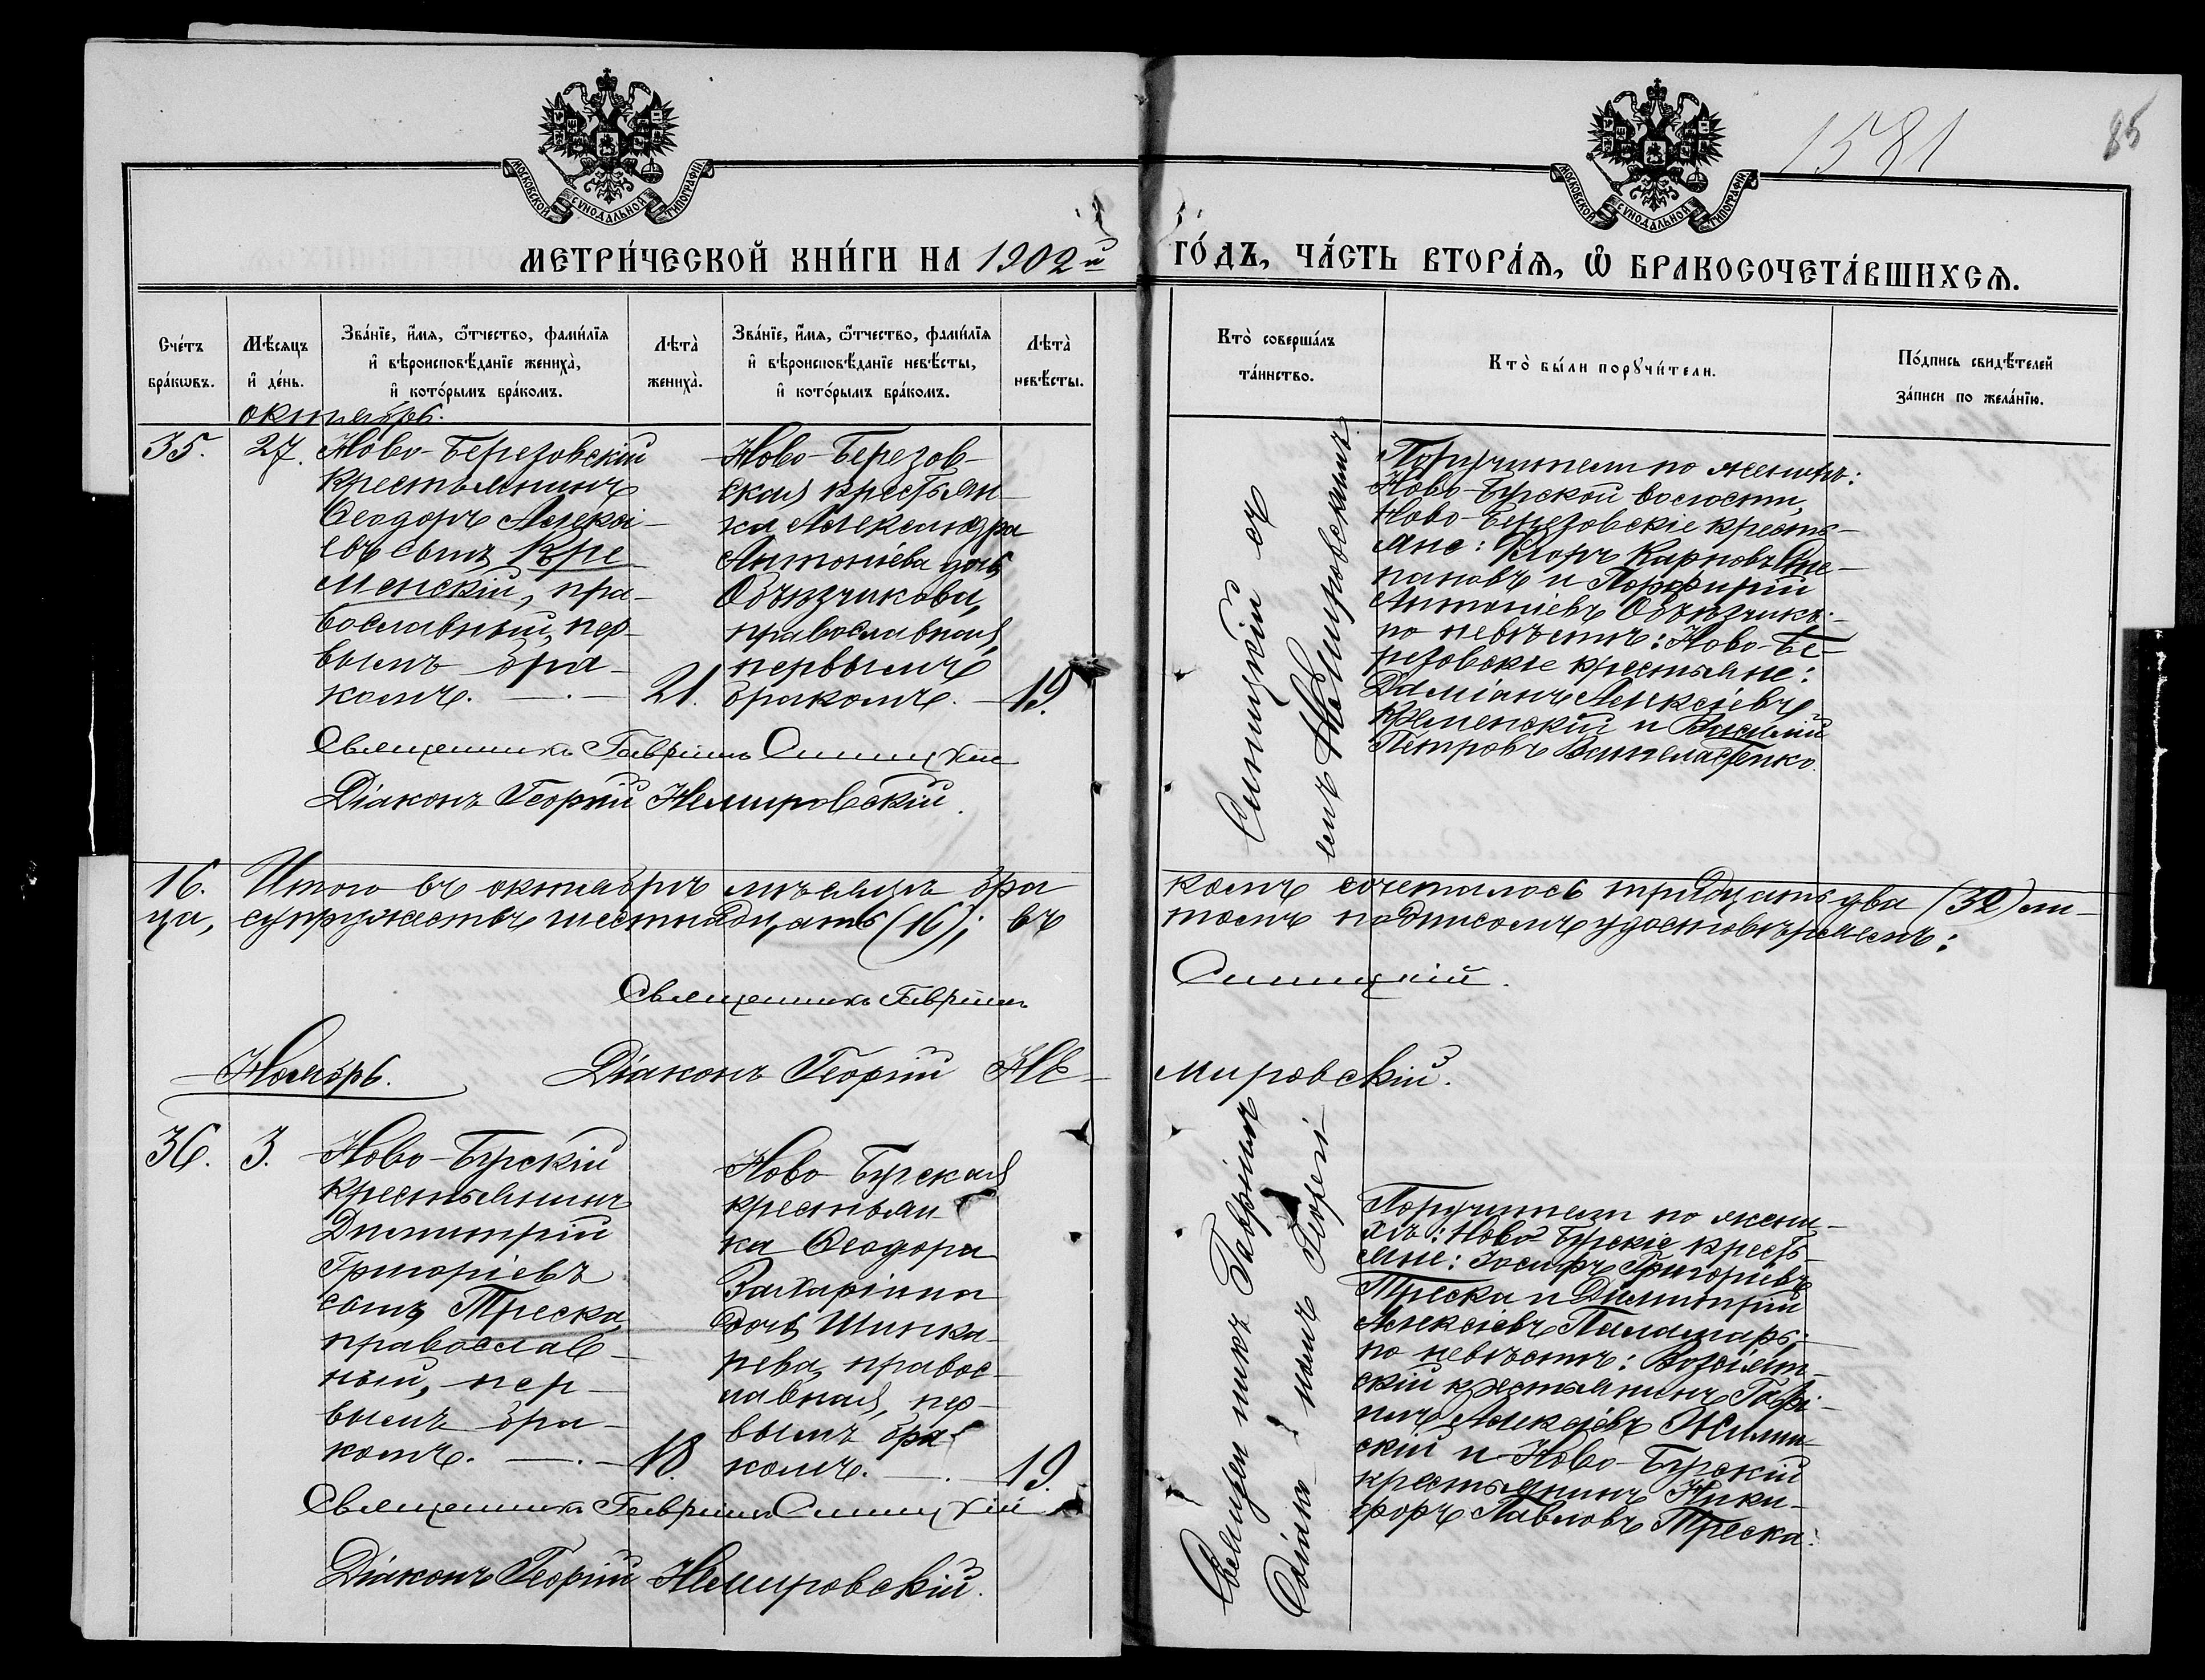 1581
85
МОСКОВСКОЙ СУНОДАЛЬНОЙ ТИПОГРАФІИ
МОСКОВСКОЙ СУНОДАЛЬНОЙ ТИПОГРАФІИ
МЕТРИ́ЧЕСКОЙ КНИ́ГИ НА 1902й ГО́ДЪ, ЧА́СТЬ ВТОРА́Я, Ѡ҆ БРАКОСОЧЕТА́ВШИХСЯ.
Сче́тъ
бра́кѡвъ.
Мѣ́сяцъ
и҆ де́нь.
Зва́нїе, и҆́мя, ѻ҆́тчество, фами́лїя
и҆ вѣроисповѣ́данїе жениха̀,
и҆ кото́рымъ бра́комъ.
Лѣта̀
жениха̀.
Зва́нїе, и҆́мя, ѻ҆́тчество, фами́лїя
и҆ вѣроисповѣ́данїе невѣ́сты,
и҆ кото́рымъ бра́комъ.
Лѣта̀
невѣ́сты.
Кто̀ соверша́лъ
та́инство.
Кто̀ бы́ли порꙋчи́тели.
По́дпись свидѣ́телей
за́писи по жела́нїю.
октябрь.
35.
27.
Ново-Березовскій
крестьянинъ
Ѳеодоръ Алексі-
евъ сынъ Кре
менскій, пра-
вославный, пер-
вымъ бра-
комъ. —.—
21.
Ново-Березов-
ская крестьян-
ка Александра
Антоніева дочь
Объѣзчикова,
православная,
первымъ
бракомъ. —
19.
Синицкій съ
Немировскимъ
Поручители по женихѣ:
Ново-Бугской волости,
Ново-Березовскіе кресть-
яне: Карповъ
и Порфирій
Антоніевъ Объѣзчикъ;
по невѣстѣ: Ново-Бе-
резовскіе крестьяне:
Даміанъ Алексіевъ
Кременскій и Василій
Петровъ
Священникъ Гавріилъ Синицкій
Діаконъ Георгій Немировскій.
16. Итого въ октябрѣ мѣсяцѣ бра комъ сочеталось тридцать два (32) ли-
ца, супружествъ шестнадцать (16); въ томъ подписомъ удостовѣряемъ:
Священникъ Гавріилъ Синицкій.
Ноябрь. Діаконъ Георгій Не- мировскій.
36.
3.
Ново-Бугскій
крестьянинъ
Димитрій
Григоріевъ
сынъ Треска,
православ-
ный, пер-
вымъ бра-
комъ. —.—
18.
Ново-Бугская
крестьян-
ка Ѳеодора
Захаріина
дочь Шинка-
рева, правос-
лавная, пер-
вымъ бра-
комъ. —.—
19.
Священникъ Гавріилъ
Діаконъ Георгі-
Поручители по жени-
хѣ: Ново-Бугскіе кресть-
яне: Іосифъ Григоріевъ
Треска и Димитрій
Алексіевъ Паламарь;
по невѣстѣ: Возсіят-
скій крестьянинъ Гаврі-
илъ Алексіевъ
скій и Ново-Бугскій
крестьянинъ Ники-
форъ Павловъ Треска.
Священникъ Гавріилъ Синицкій
Діаконъ Георгій Немировскій.